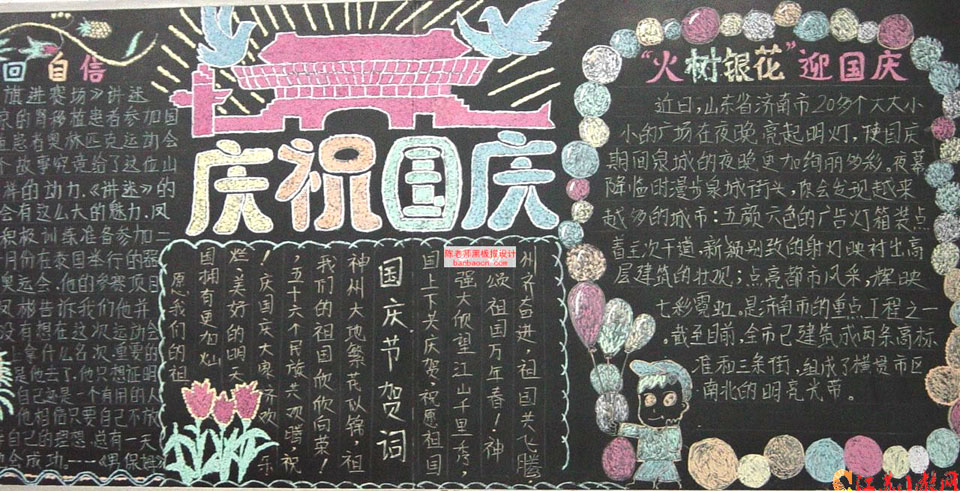 回 自信
旗进赛场》讲述
京的肾移植患者参加国
植患者奥林匹克运动会
个故事究竟给了这位山
样的动力,《讲述》的
会有这么大的魅力.凤
积极训练准备参加二
月份在泰国举行的强
奥运会.他的参赛项目
风彬告诉我们他并
没有想在这次运动会
上拿什么名次,重要的
是他去了,他只想证明
自己还是一个有用的人
他相信只要自己不放
弃自己的理想,总有一天
会成功。
庆祝国庆
陈老师黑板报设计
banbaocn.com
州齐奋进,祖国共飞腾
颂祖国万年春!神
强大欣望江山千里秀,
国上下共庆贺,祝愿祖国
国庆节贺词
神州大地繁花似锦,祖
我们的祖国欣欣向荣!
五十六个民族共欢腾,祝
!庆国庆大家齐欢,乐
烂美好的明天
国拥有更加灿
愿我们的祖
“火树银花”迎国庆
近日,山东省济南市20多个大大小
小的广场在夜晚亮起明灯,使国庆
期间泉城的夜晚更加绚丽多彩。夜幕
降临时漫步泉城街头,你会发现越来
越多的城市:五颜六色的广告灯箱装点
着主次干道,新颖别致的射灯映衬出高
层建筑的壮观;点亮都市风采,辉映
七彩霓虹。是济南市的重点工程之一
截至目前,全市已建筑成两条高标
准和三条街,组成了横贯市区
南北的明亮光带。